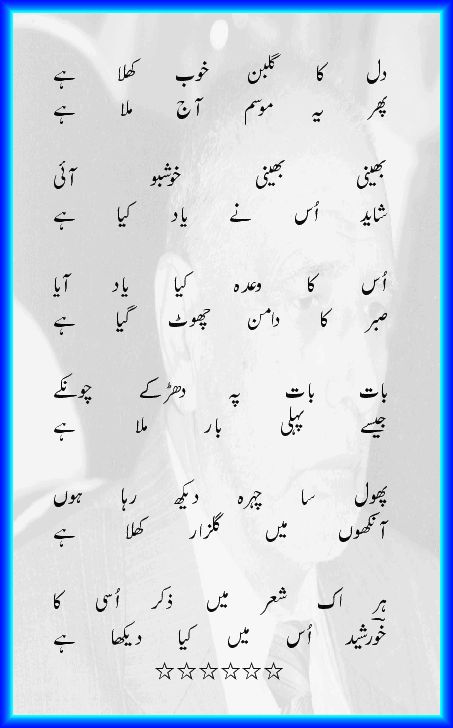 دل کا گلبن خوب کھلا ہے
پھر یہ موسم آج ملا ہے
بھینی بھینی خوشبو آئی
شاید اُس نے یاد کیا ہے
اُس کا وعدہ کیا یاد آیا
صبر کا دامن چھوٹ گیا ہے
بات بات پہ دھڑکے چونکے
جیسے پہلی بار ملا ہے
پھول سا چہرہ دیکھ رہا ہوں
آنکھوں میں گلزار کھلا ہے
ہر اک شعر میں ذکر اُسی کا
خورشید اُس میں کیا دیکھا ہے
☆☆☆☆☆☆